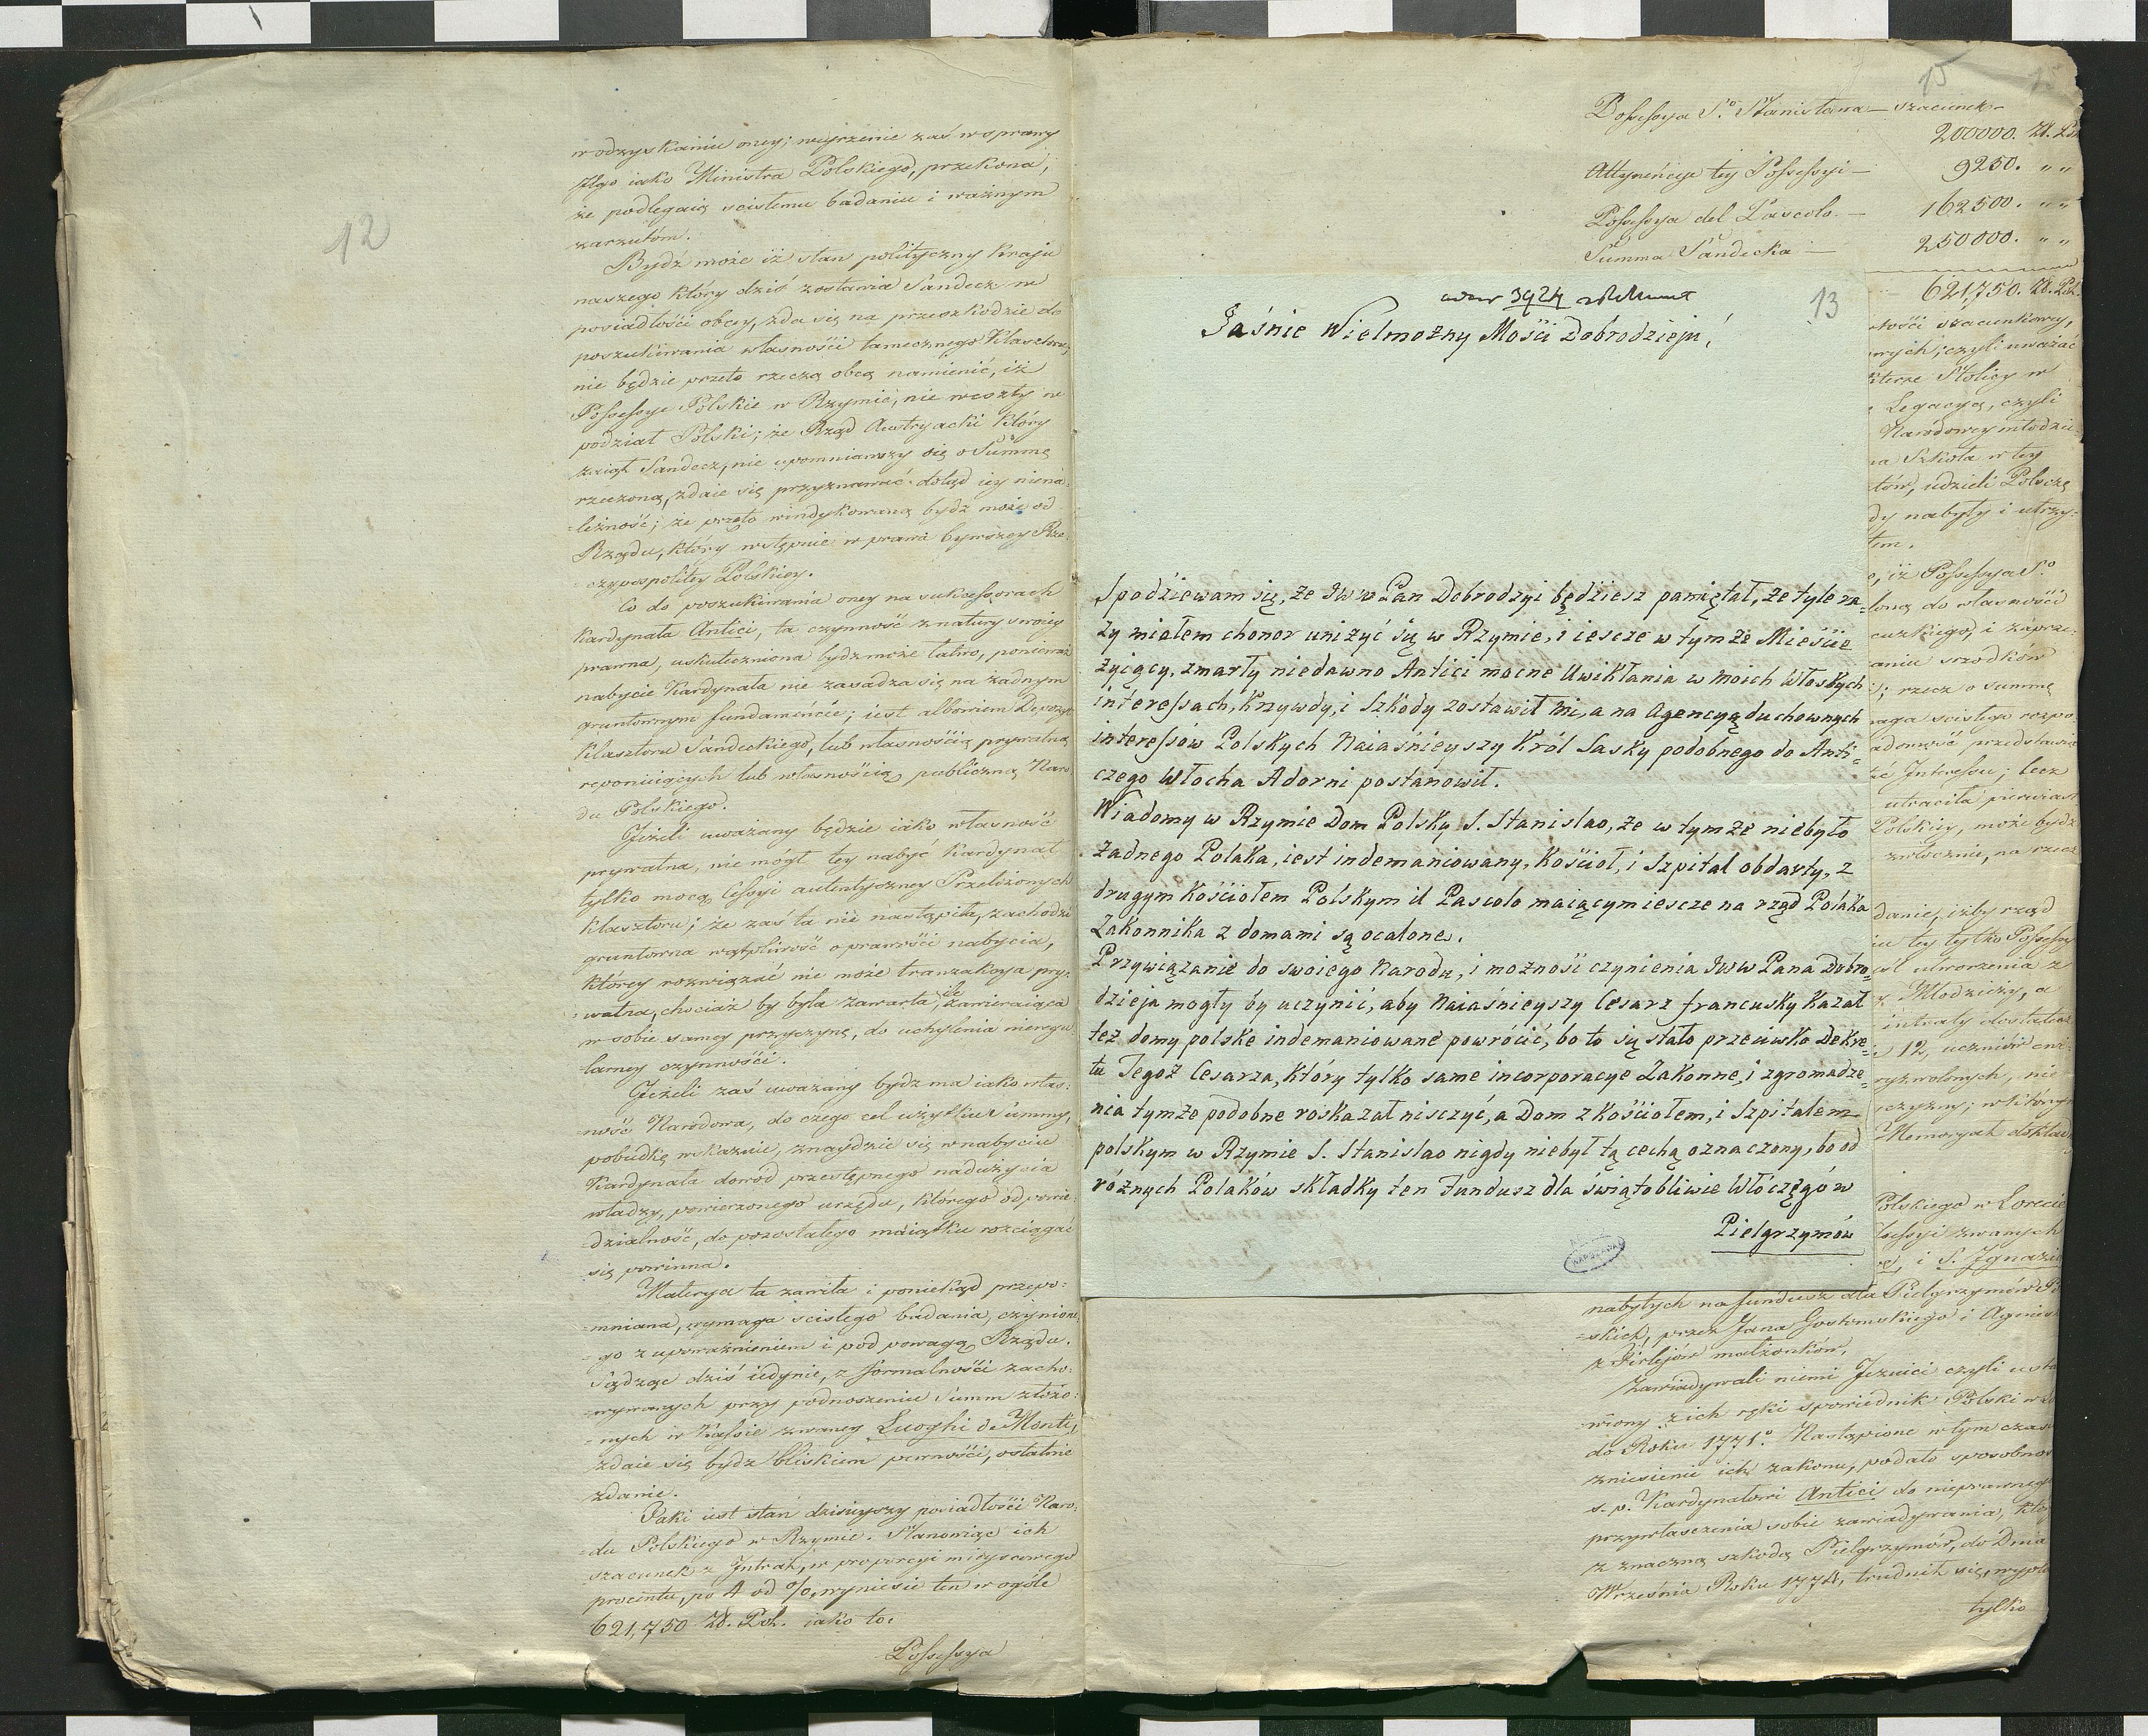 12
w odzyskaniu oney; weyrzenie zaś w sprawy
iego iako Ministra Polskiego, przekona,
że podlegaią scisłemu badaniu i ważnym
zarzutóm.
Bydź może iż stan polityczny Kraju
naszego który dziś zostawia Sandecz w
posiadłości obcey, zda się na przeszkodzie do
poszukiwania własności tamecznego Klasztoru,
nie będzie przeto rzeczą obcą namienić, iż
Possessye Polskie w Rzymie, nie weszły w
podział Polski; że Rząd Austryacki który
zaiął Sandecz, nie upomniawszy się o Summę
rzeczoną, zdaie się przyznawać dotąd iey niena-
=leżność; że przeto windykowaną bydź może od
Rządu, który wstępuie w prawa bywszey Rze-
=czypospolitey Polskiey.
Co do poszukiwania oney na sukcessorach
Kardynała Antici, ta czynność z natury swoiey
prawna, uskuteczniona bydź może łatwo, ponieważ
nabycie Kardynała nie zasadza się na żadnym
gruntownym fundamencie; iest albowiem Depozyt
Klasztoru Sandeckiego, lub własnością prywatną
reponuiących lub własnością publiczną Naro-
du Polskiego.
Jeżeli uważany będzie iako własność
prywatna, nie mógł tey nabyć Kardynał
tylko mocą Cessyi autentyczney Przełożonych
Klasztoru; że zaś ta nie nastąpiła, zachodzi
gruntowna wątpliwość o prawości nabycia,
którey rozwiązać nie może tranzakcya pry-
=watna, chociaż by była zawarta, ile zawieraiąca
w sobie samey przyczynę, do uchylenia nieregu-
larney czynności.
Jeżeli zaś uważany bydź ma iako włas:
=ność Narodowa, do czego cel użytku Summy,
pobudkę wskazuie, znaydzie się w nabyciu
Kardynała dowód przestępnego nadużycia
władzy, powierzonego urzędu, którego odpowie-
=dzialność, do pozostałego maiątku rozciągać
się powinna.
Materya ta zawiła i poniekąd przepo:
=mniana, wymaga scisłego badania, czynione-
=go z upoważnieniem i pod powagą Rządu.
Sądząc dziś iedynie, z formalności zacho-
=wywanych przy podnoszeniu Summ złożo:
=nych w Kassie zwaney Luoghi di Monti,
zdaie się bydź bliskiem pewności, ostatnie
zdanie.
Jaki iest stan dzisieyszy posiadłości Naro:
=du Polskiego w Rzymie. Stanowiąc ich
szacunek z Intrat, w proporcyi mieyscowego
procentu, po 4 od %, wyniesie ten w ogóle
621,750 Zł. Pol. iako to.
Possessya
15
Possessya So. Stanisława — szacunek —
200000. Zł. Pol
Attynencye tey Possessyi — 9250. " "
Possessya del Pascolo. — 162500. " "
Summa Sandecka — 250000. " "
621,750. Zł. Pol.
13
3924
Jaśnie Wielmożny Mości Dobrodzieju,
Spodziewam się, że JWW Pan Dobrodzyi będziesz pamiętał, że tyle ra=
zy miałem chonor uniżyć się w Rzymie, i iescze w tymże Mieście
żyiący, zmarły niedawno Antici mocne Uwikłania w moich Włoskych
interessach, Krzywdy, i Szkody zostawił mi, a na Agencyą duchownych
interessów Polskych Naiaśnieyszy Król Sasky podobnego do Anti=
czego Włocha Adorni postanowił.
Wiadomy w Rzymie Dom Polsky S. Stanislao, że w tymże niebyło
żadnego Polaka, iest indemaniowany, Kościoł, i Szpital obdarty, z
drugym Kościołem Polskym il Pascolo maiącym iescze na rząd Polaka
Zakonnika z domami są ocalone.
Przywiązanie do swoiego Narodu, i możność czynienia JWW Pana Dobro=
dzieja mogły by uczynić, aby Naiaśnieyszy Cesarz francusky kazał
też domy polske indemaniowane powrócić, bo to się stało przeciwko Dekre=
tu Tegoż Cesarza, Który tylko same incorporacye Zakonne, i zgromadze=
nia tymże podobne roskazał nisczyć, a Dom z kościołem, i Szpitalem
polskym w Rzymie S. Stanislao nigdy niebył tą cechą oznaczony, bo od
różnych Polaków składky ten Fundusz dla świątobliwie Włóczęgów
Pielgrzymów
tości szacunkowey,
wych; czyli uważać
terze Stolicy w
Legacyą, czyli
Narodowey młodzie-
na Szkoła w tey
tów, udzieli Polszcze
dy nabyły i utrzy-
tem.
, iż Possessya So
loną do własności
cuzkiego, i zaprze-
aniu srzodków
; rzecz o summę
maga scisłego rozpo-
adomość przedstawia
ść Interessu; lecz
utraciła pierwiast
Polskiey, może bydź
zwłocznie, na rzecz
danie, iżby rząd
tey tylko Possessyi
śl utworzenia z
Młodzieży, a
intraty dostatecz
12, uczniów
wyzwolonych, nie
czyzny; w którym
Memoryał dokład
Polskiego w Lorecie
Possessyi zwanych
i S. Ignazio
nabytych na fundusz dla Pielgrzymów Po
=skich, przez Jana Gostomskiego i Agniesz
z Firlejów małżonków.
Zawiadywali niemi Jezuici czyli usta
wiony z ich ręki spowiednik Polski w
do Roku 1771o. Nastąpione w tym czas
zniesienie ich zakonu, podało sposobnoś
s. p. Kardynałowi Antici do nieprawneg
przywłaszczenia sobie zawiadywania, któ
z znaczną szkodą Pielgrzymów, do Dnia
Września Roku 1774, trudnił się, wypła
tylko